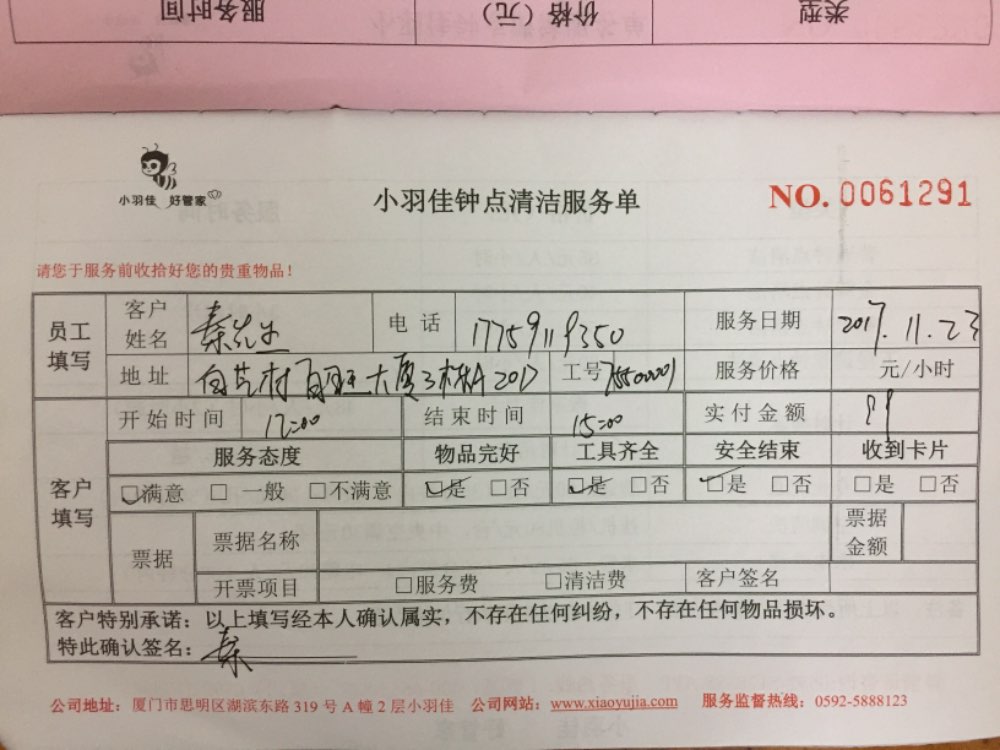 服务时间 价格（元） 类型
小羽佳 好管家
小羽佳钟点清洁服务单
NO. 0061291
请您于服务前收拾好您的贵重物品！
员工填写 客户姓名 秦先生 电 话 17759119350 服务日期 2017.11.23
地址 大厦 2017 工号 服务价格 元/小时
客户填写 开始时间 12:00 结束时间 15:00 实付金额 99
服务态度 物品完好 工具齐全 安全结束 收到卡片
☑满意 □ 一般 □不满意 ☑是 □否 ☑是 □否 ☑是 □否 □是 □否
票据 票据名称 票据金额
开票项目 □服务费 □清洁费 客户签名
客户特别承诺：以上填写经本人确认属实，不存在任何纠纷，不存在任何物品损坏。
特此确认签名：秦
公司地址：厦门市思明区湖滨东路 319 号 A 幢 2 层小羽佳 公司网站：www.xiaoyujia.com 服务监督热线：0592-5888123